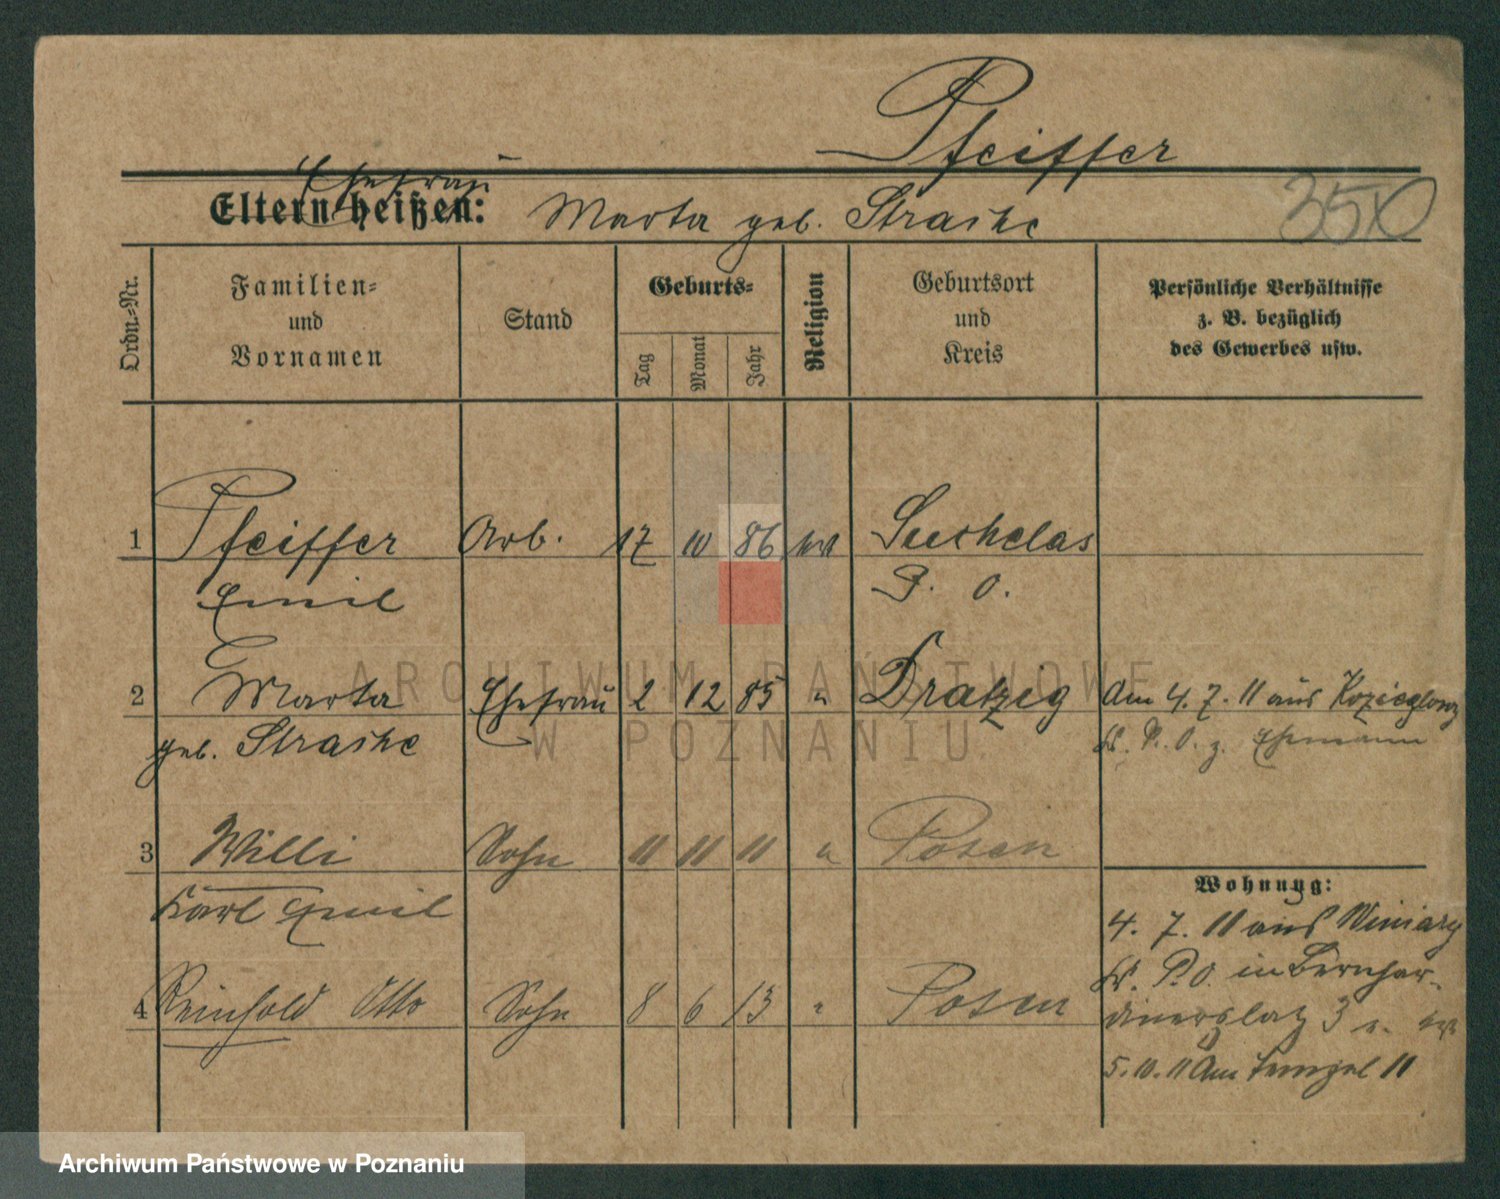 Pfeiffer
Ehefrau
Eltern heißen: Marta geb. Straske
350
Ordn.-Nr.
Familien- und Vornamen
Stand
Geburts-
Tag
Monat
Jahr
Religion
Geburtsort und Kreis
Persönliche Verhältnisse z. B. bezüglich des Gewerbes usw.
1 Pfeiffer Arb. 17 10 86 Suchelas
Emil P. O.
2 Marta Ehefrau 2 12 85 " Dratzig Am 4. 7. 11 aus Kozieglowy
geb. Straske Kr. P. O. z. Ehemann
3 Willi Sohn 11 11 11 " Posen
Karl Emil
4 Reinhold Otto Sohn 8 6 13 " Posen
Wohnung:
4. 7. 11 aus Winiary
Kr. P. O. in Bernhar-
dinerplatz 3
5. 10. 11 Am 11
ARCHIWUM PAŃSTWOWE
W POZNANIU
Archiwum Państwowe w Poznaniu